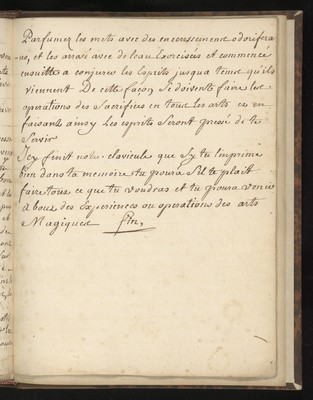 Parfumez les mets avec des encensement odorifera-
ns, et les arrosé avec de leau Exorcisées et commencé
ensuitte a conjurer les Esprits jusqua tems qu'ils
viennent De cette façon se doivent faire les
operations des Sacrifices en tous les arts et en
faisant ainsy les esprits seront pressé de te
servir
Jcy finit notre clavicule que sy tu l'imprime
bien dans ta memoire tu poura s'il te plait
faire tous ce que tu voudras et tu poura venir
a bout des Experiences ou operations des arts
Magiques fin,